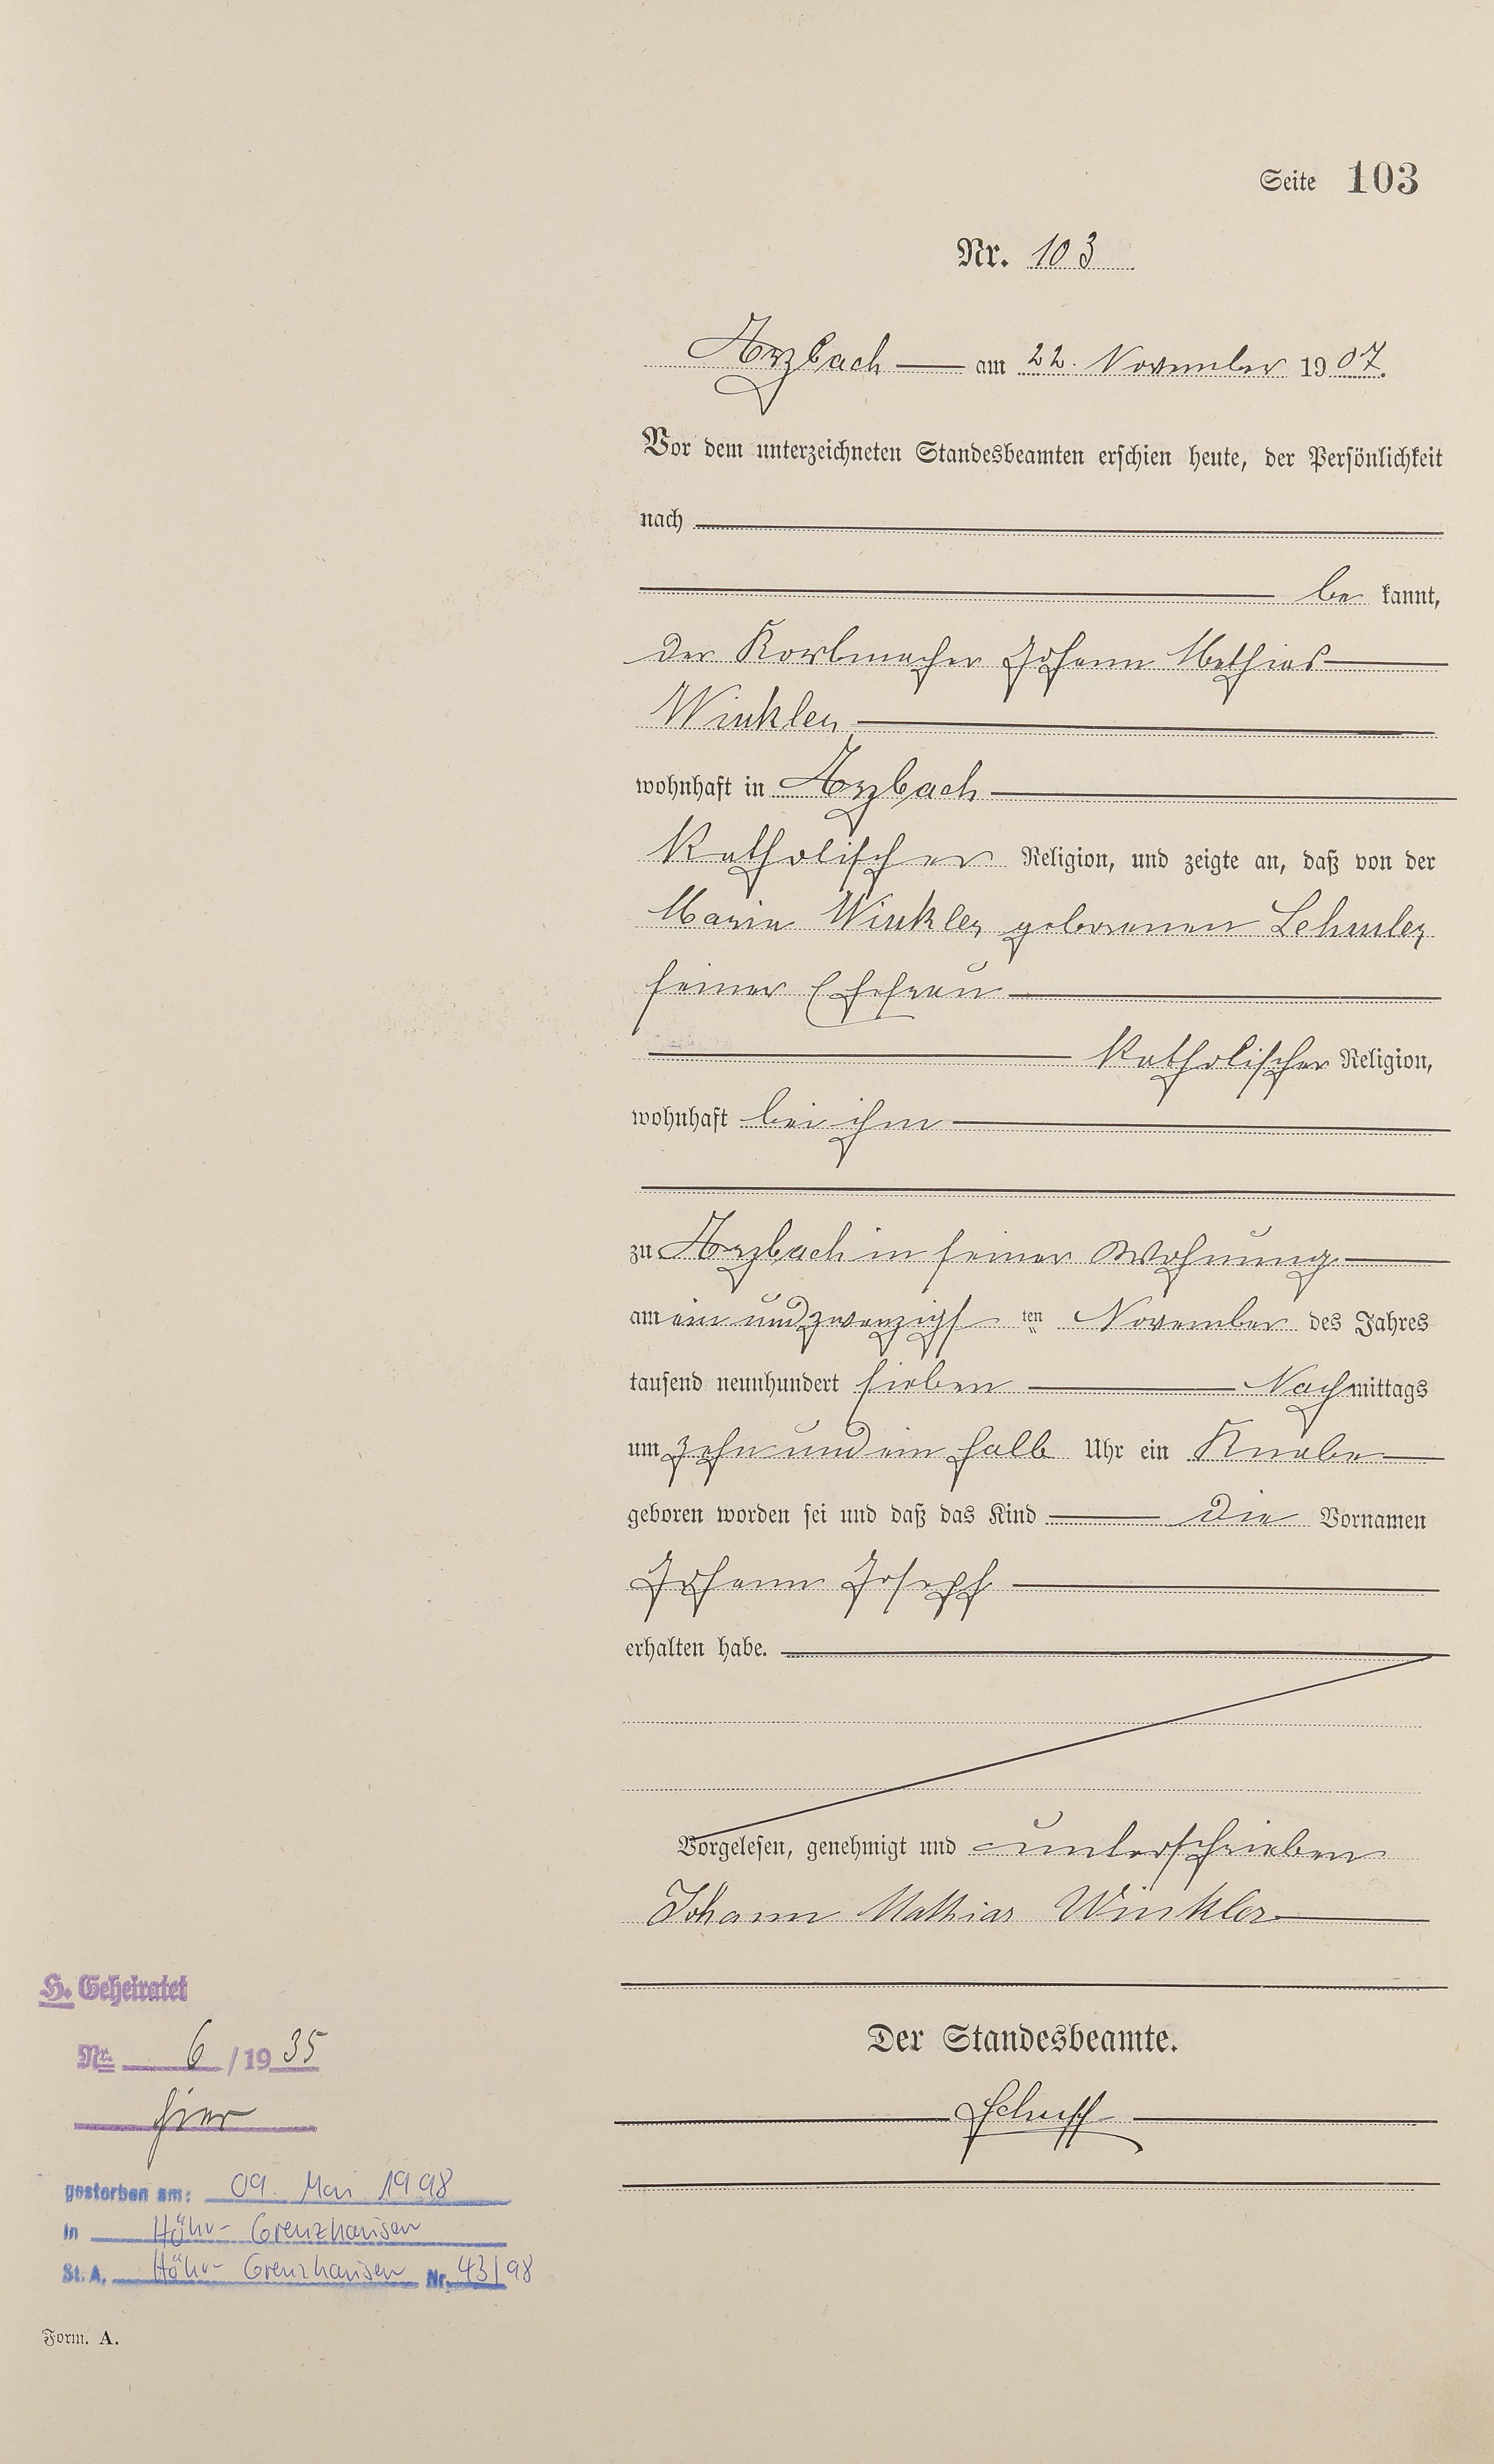 Seite 103
Nr. 103
Arzbach am 22. November 1907.
Vor dem unterzeichneten Standesbeamten erschien heute, der Persönlichkeit
nach
be kannt,
der Korbmacher Johann Mathias
Winkler
wohnhaft in Arzbach
katholischer Religion, und zeigte an, daß von der
Maria Winkler geborenen Lehmler
seiner Ehefrau
katholischer Religion,
wohnhaft bei ihm
zu Arzbach in seiner Wohnung
am ein und zwanzigs ten November des Jahres
tausend neunhundert sieben Nachmittags
um zehn und ein halb Uhr ein Knabe
geboren worden sei und daß das Kind die Vornamen
Johann Joseph
erhalten habe.
Vorgelesen, genehmigt und unterschrieben
Johann Mathias Winkler
Der Standesbeamte.
H. Geheiratet
Nr. 6/1935
hier
gestorben am: 09. Mai 1998
in Höhr-Grenzhausen
St. A. Höhr-Grenzhausen Nr. 43/98
Form. A.